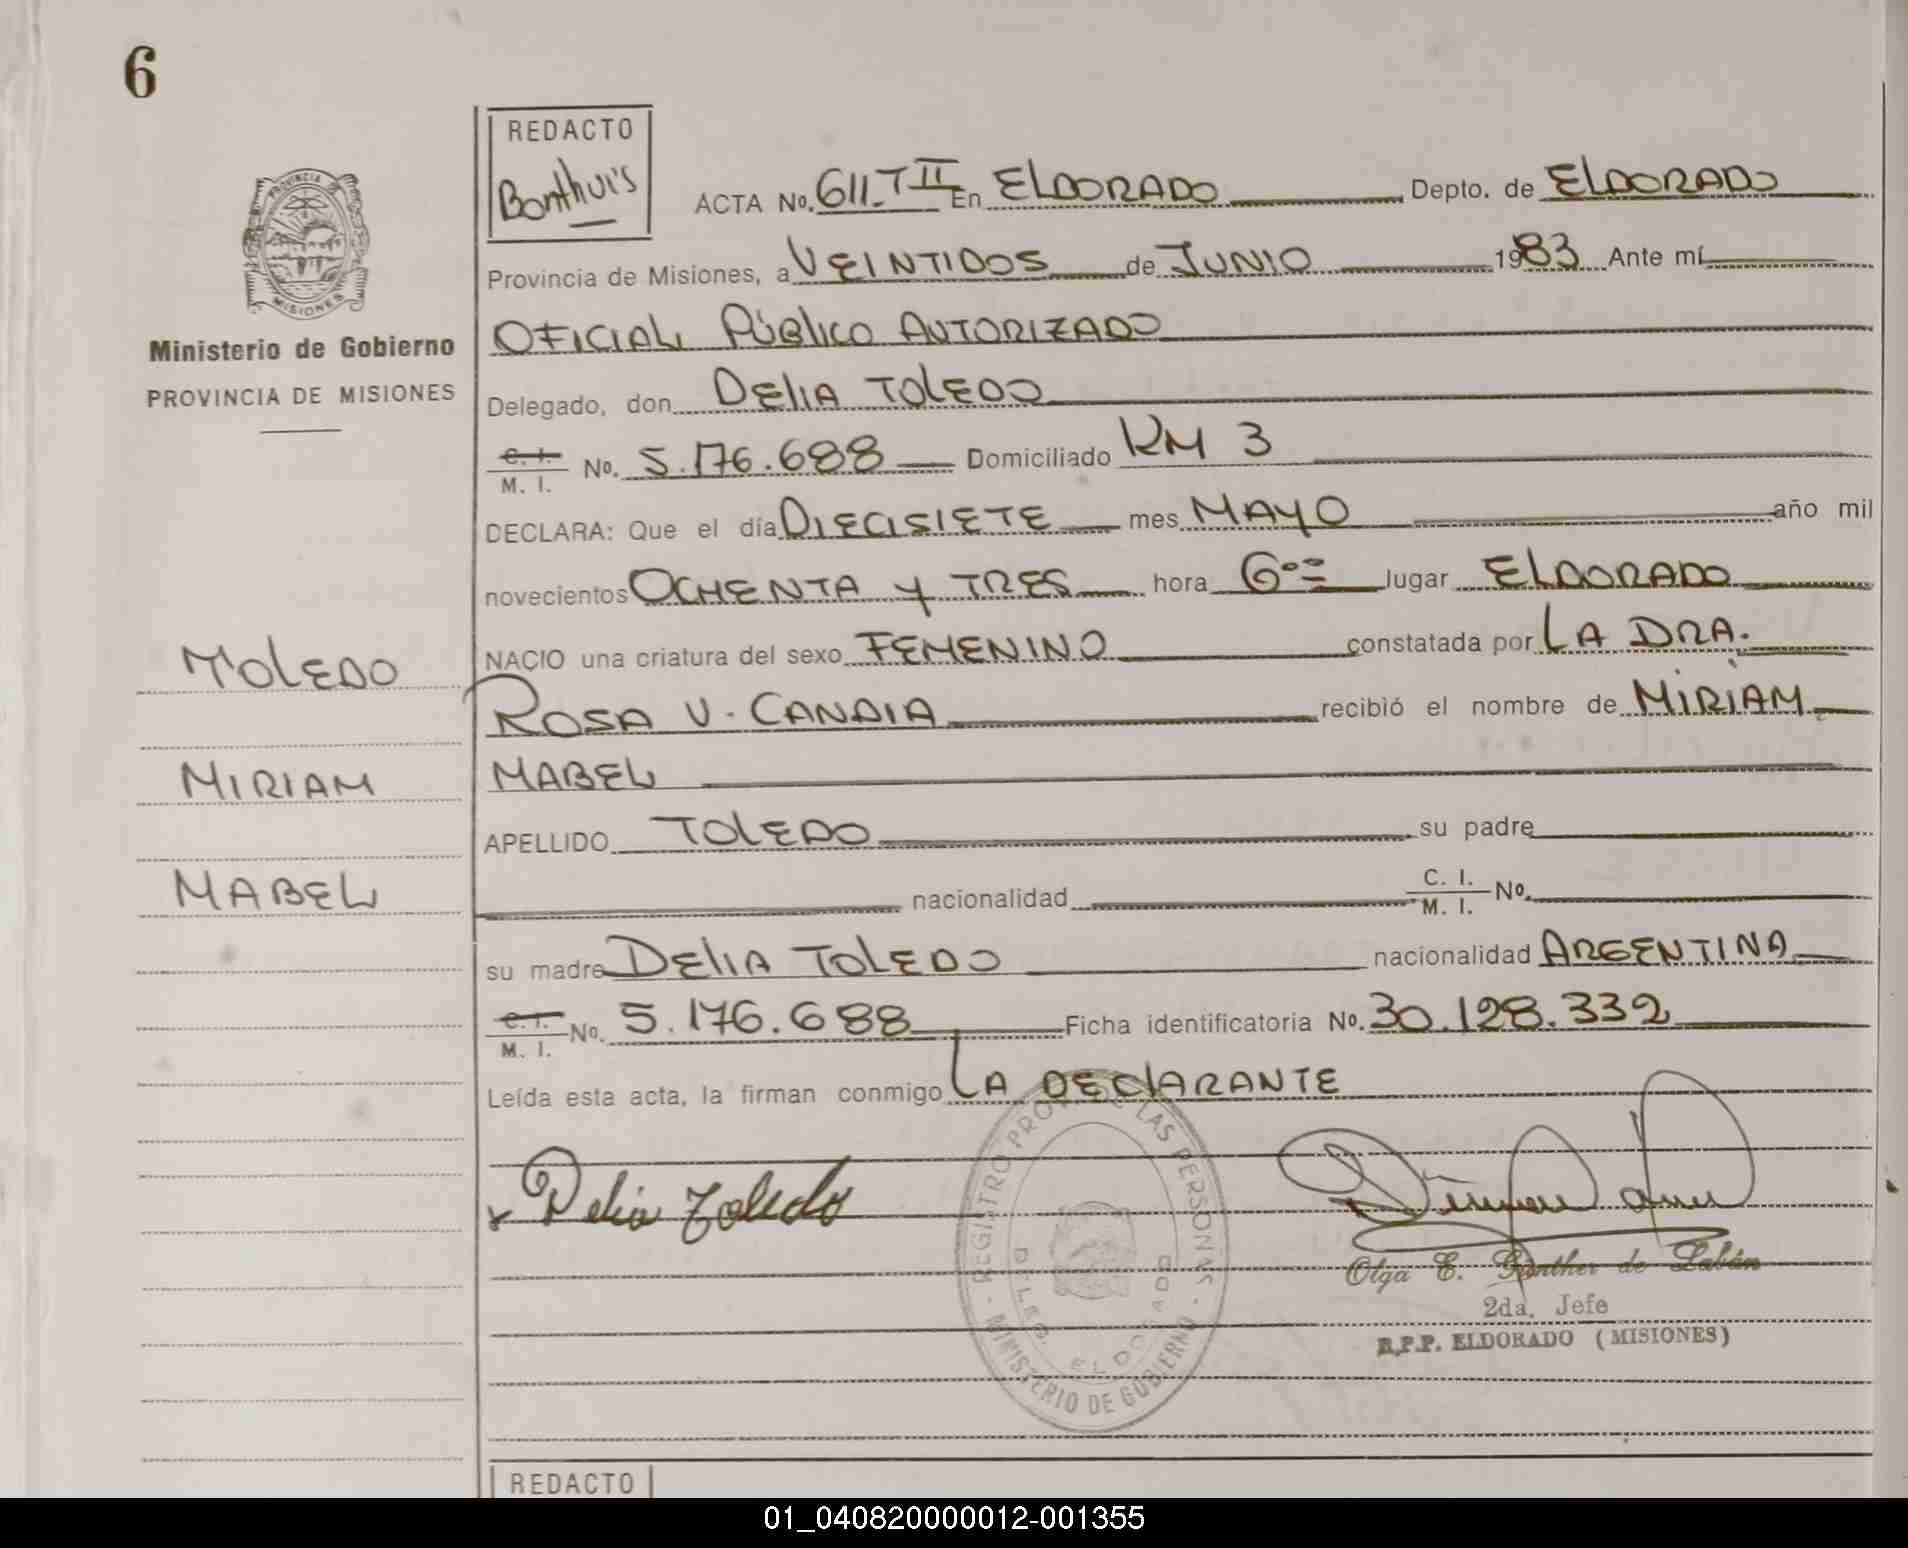 6
REDACTO
Bonthuis
ACTA No. 611.T II En ELDORADO Depto. de ELDORADO
Provincia de Misiones, a VEINTIDOS de JUNIO 1983 Ante mí
OFICIAL PÚBLICO AUTORIZADO
Delegado, don DELIA TOLEDO
C. I.
M. I. No. 5.176.688 Domiciliado KM 3
DECLARA: Que el día DIECISIETE mes MAYO año mil
novecientos OCHENTA Y TRES hora 6 00 lugar ELDORADO
NACIO una criatura del sexo FEMENINO constatada por LA DRA.
ROSA V. CANDIA recibió el nombre de MIRIAM
MABEL
APELLIDO TOLEDO su padre
nacionalidad C. I.
M. I. No.
su madre DELIA TOLEDO nacionalidad ARGENTINA
C. I.
M. I. No. 5.176.688 Ficha identificatoria No. 30.128.332
Leída esta acta, la firman conmigo LA DECLARANTE
PROVINCIA DE
MISIONES
Ministerio de Gobierno
PROVINCIA DE MISIONES
TOLEDO
MIRIAM
MABEL
x Delia Toledo
REGISTRO PROV. DE LAS PERSONAS
DELEG. ELDORADO
MINISTERIO DE GOBIERNO
Olga E. Gunther de Labán
2da. Jefe
R.P.P. ELDORADO (MISIONES)
REDACTO
01_040820000012-001355